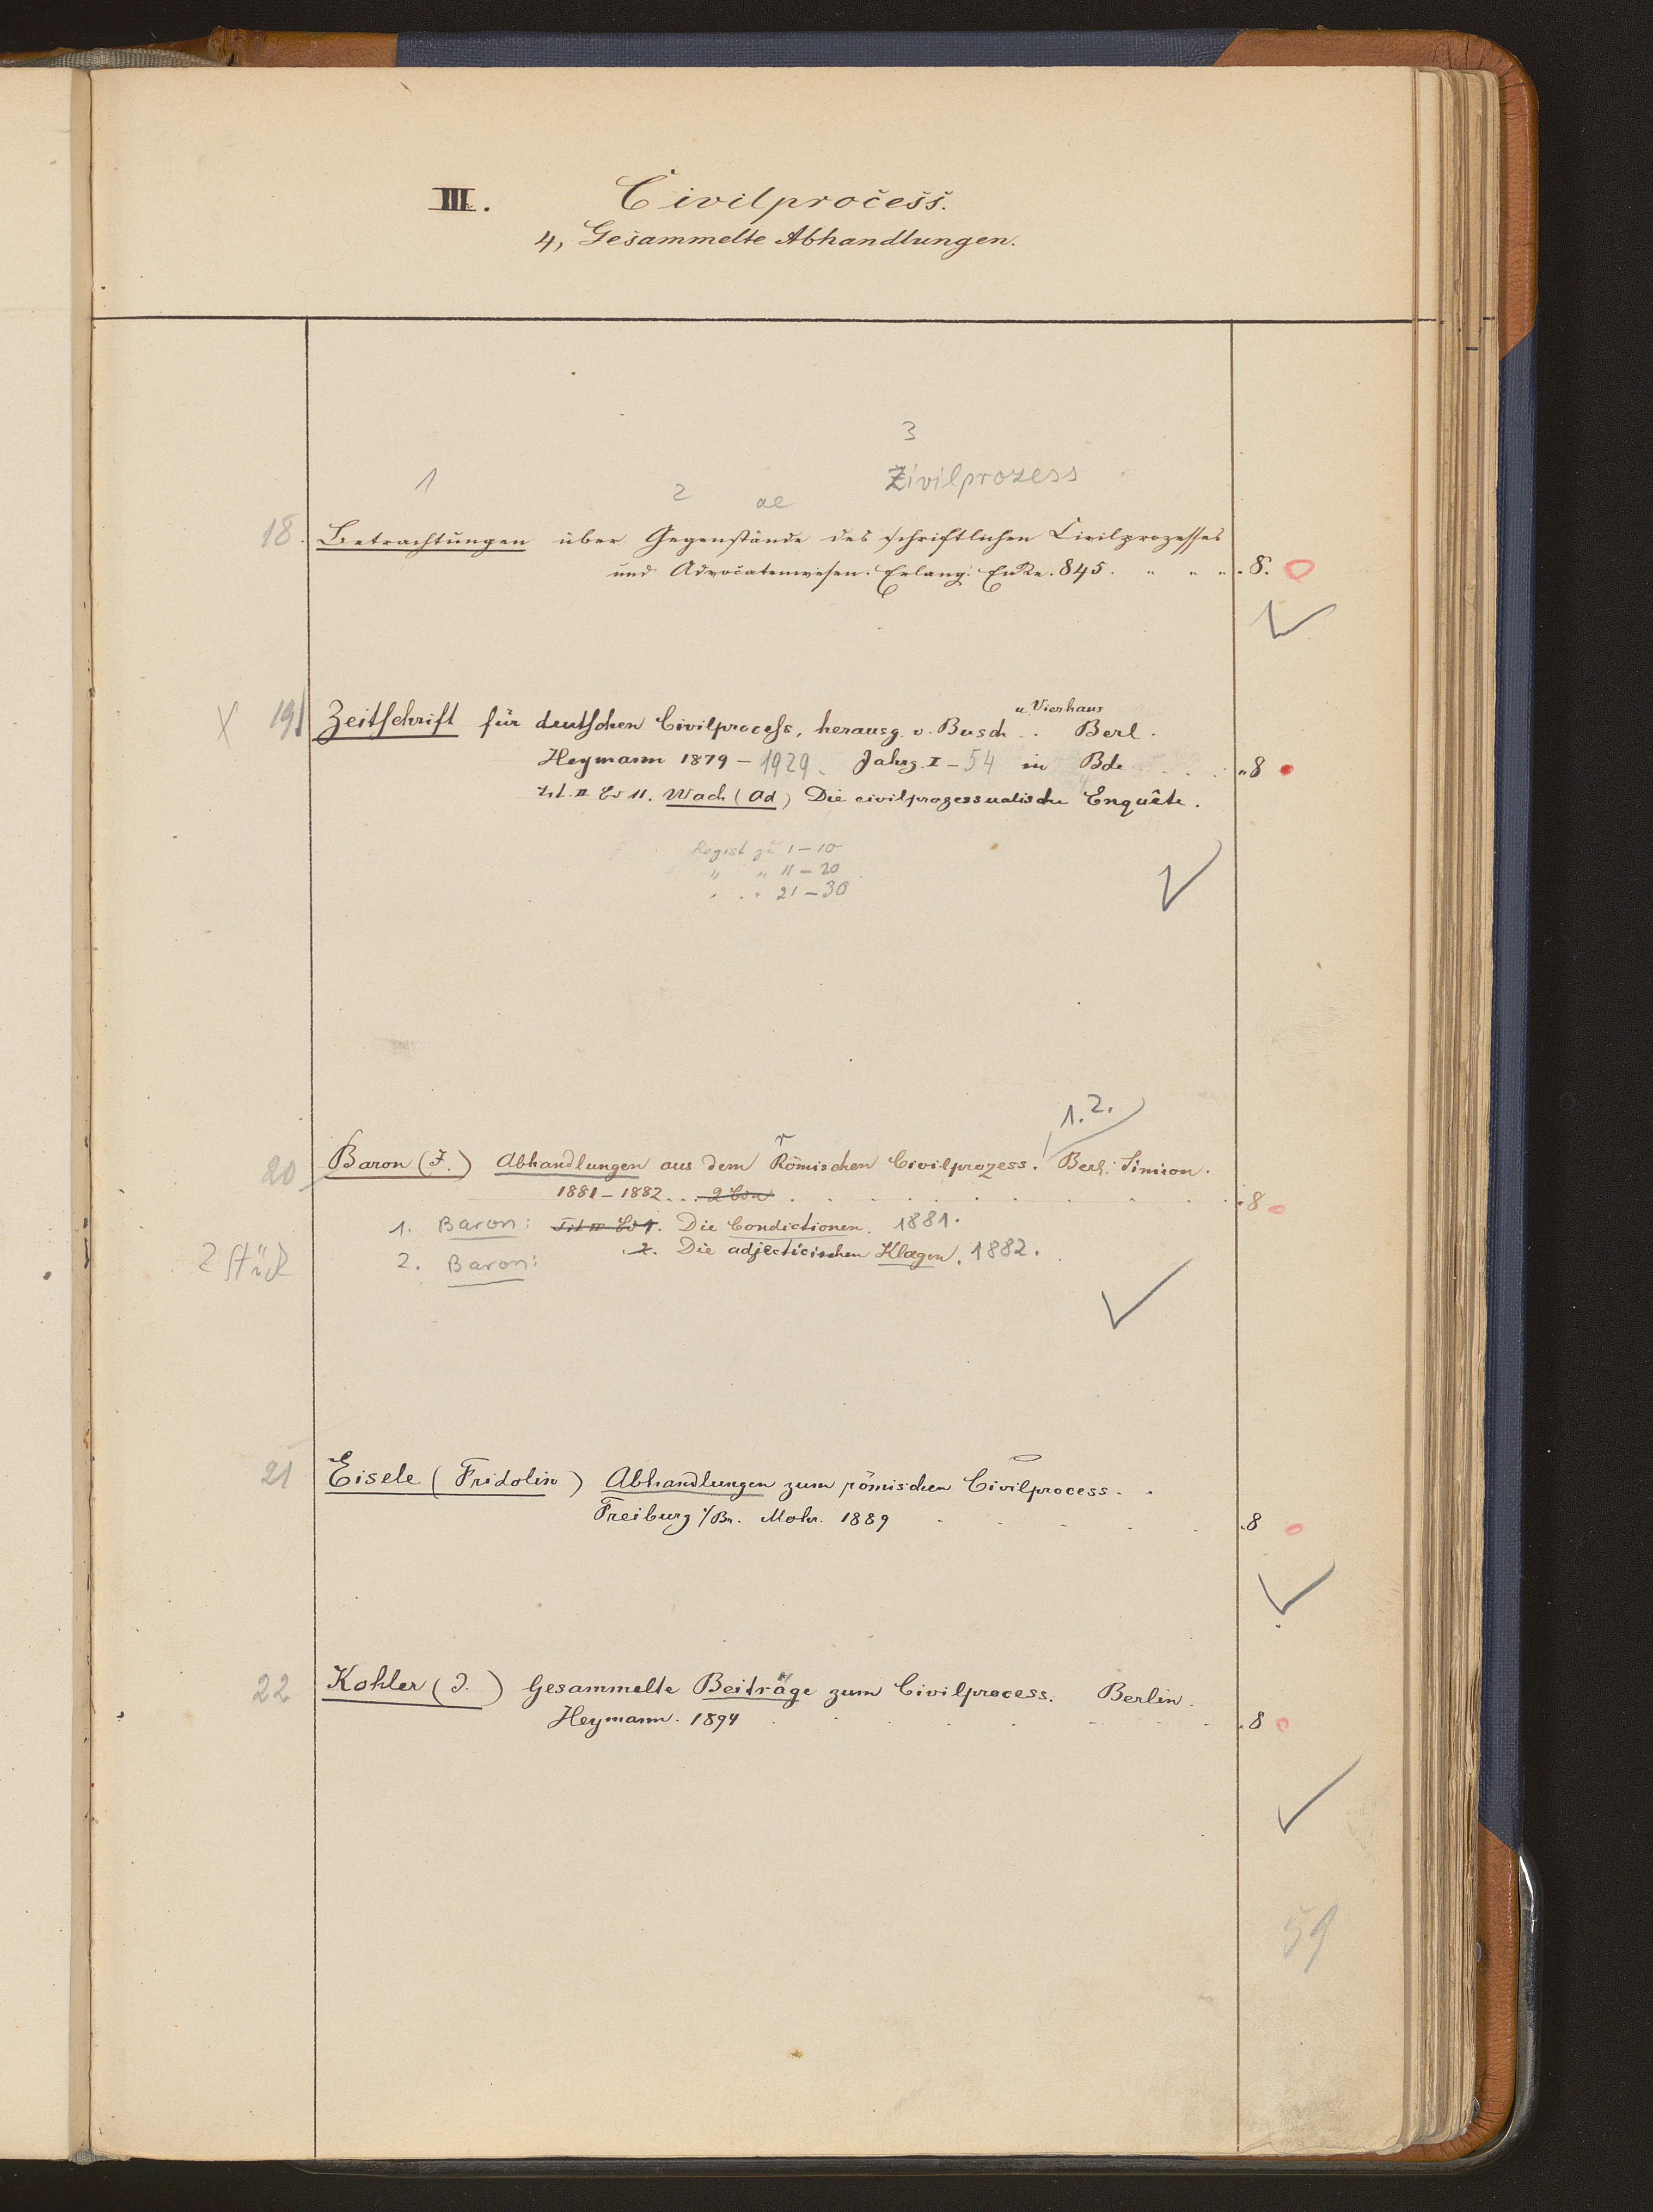 III. Civilprocess.
4, Gesammelte Abhandlungen.
3
1 2 ae Zivilprozess
18. Betrachtungen über Gegenstände des schriftlichen Civilprozesses
und Advocatenwesen. Erlang. Enke. 845. " " " . 8.
u. Vierhaus
X 19 Zeitschrift für deutschen Civilprocess, herausg. v. Busch . . Berl.
Heymann 1879 - 1929. Jahrg. I - 54 in Bde . . . . " 8
Bd 11. Wach (Ad) Die civilprozessualische Enquête.
Regist zu 1-10
" " 11-20
" " 21-30
1. 2.
20 Baron (J.) Abhandlungen aus dem Römischen Civilprozess. Berl. Simion.
r
1881-1882 . . . 2 Bde . . . . . . . 8
1. Baron: Tit II Bd 1. Die Condictionen. 1881.
2 Stück 2. Baron: 2. Die adjecticischen Klagen. 1882.
21 Eisele (Fridolin) Abhandlungen zum römischen Civilprocess. .
Freiburg i/Br. Mohr. 1889 . . . . . . 8
22 Kohler (J.) Gesammelte Beiträge zum Civilprocess. Berlin.
Heymann. 1894 . . . . . . . 8
59